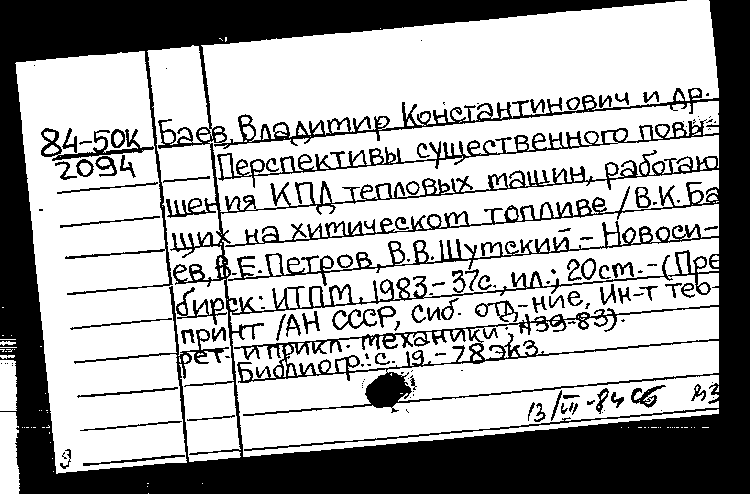 84-50К Баев, Владимир Константинович и др.
2094 Перспективы существенного повы-
шения КПД тепловых машин, работаю
щих на химическом топливе / В.К. Ба
ев, В.Е. Петров, В.В. Шумский - Новоси-
бирск: ИТПМ, 1983.- 37с., ил.; 20см.- (Пре
принт / АН СССР, Сиб. отд-ние, Ин-т тео-
рет. и прикл. механики; №39-83).
Библиогр.: с. 19.- 78 экз.
13/III-84
9